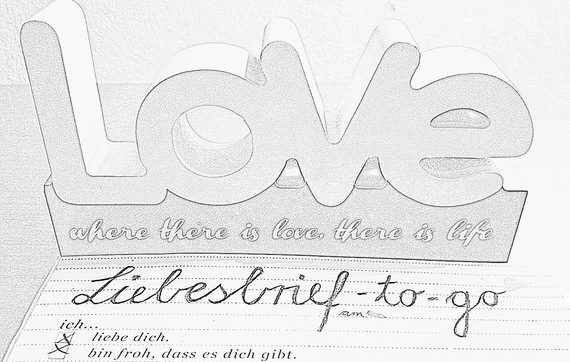 Love
where there is love, there is life
Liebesbrief-to-go
ich...
liebe dich.
bin froh, dass es dich gibt.